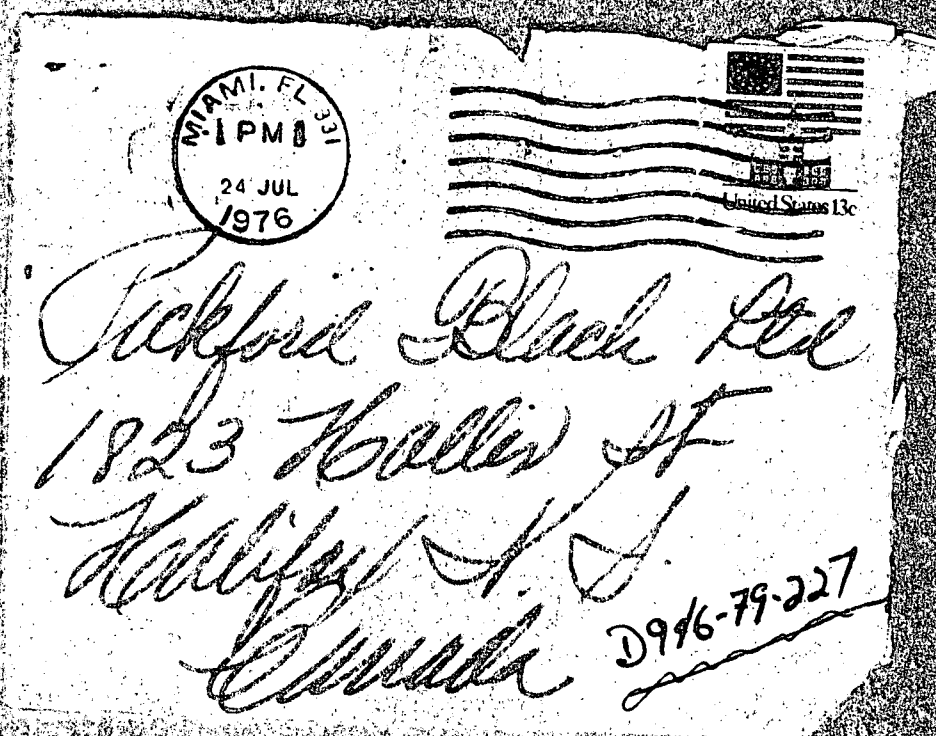 MIAMI, FL 331
PM
24 JUL
1976
United States 13c
Pickford Black Ltd
1823 Hollis St
Halifax N. S.
Canada
D946-79-227